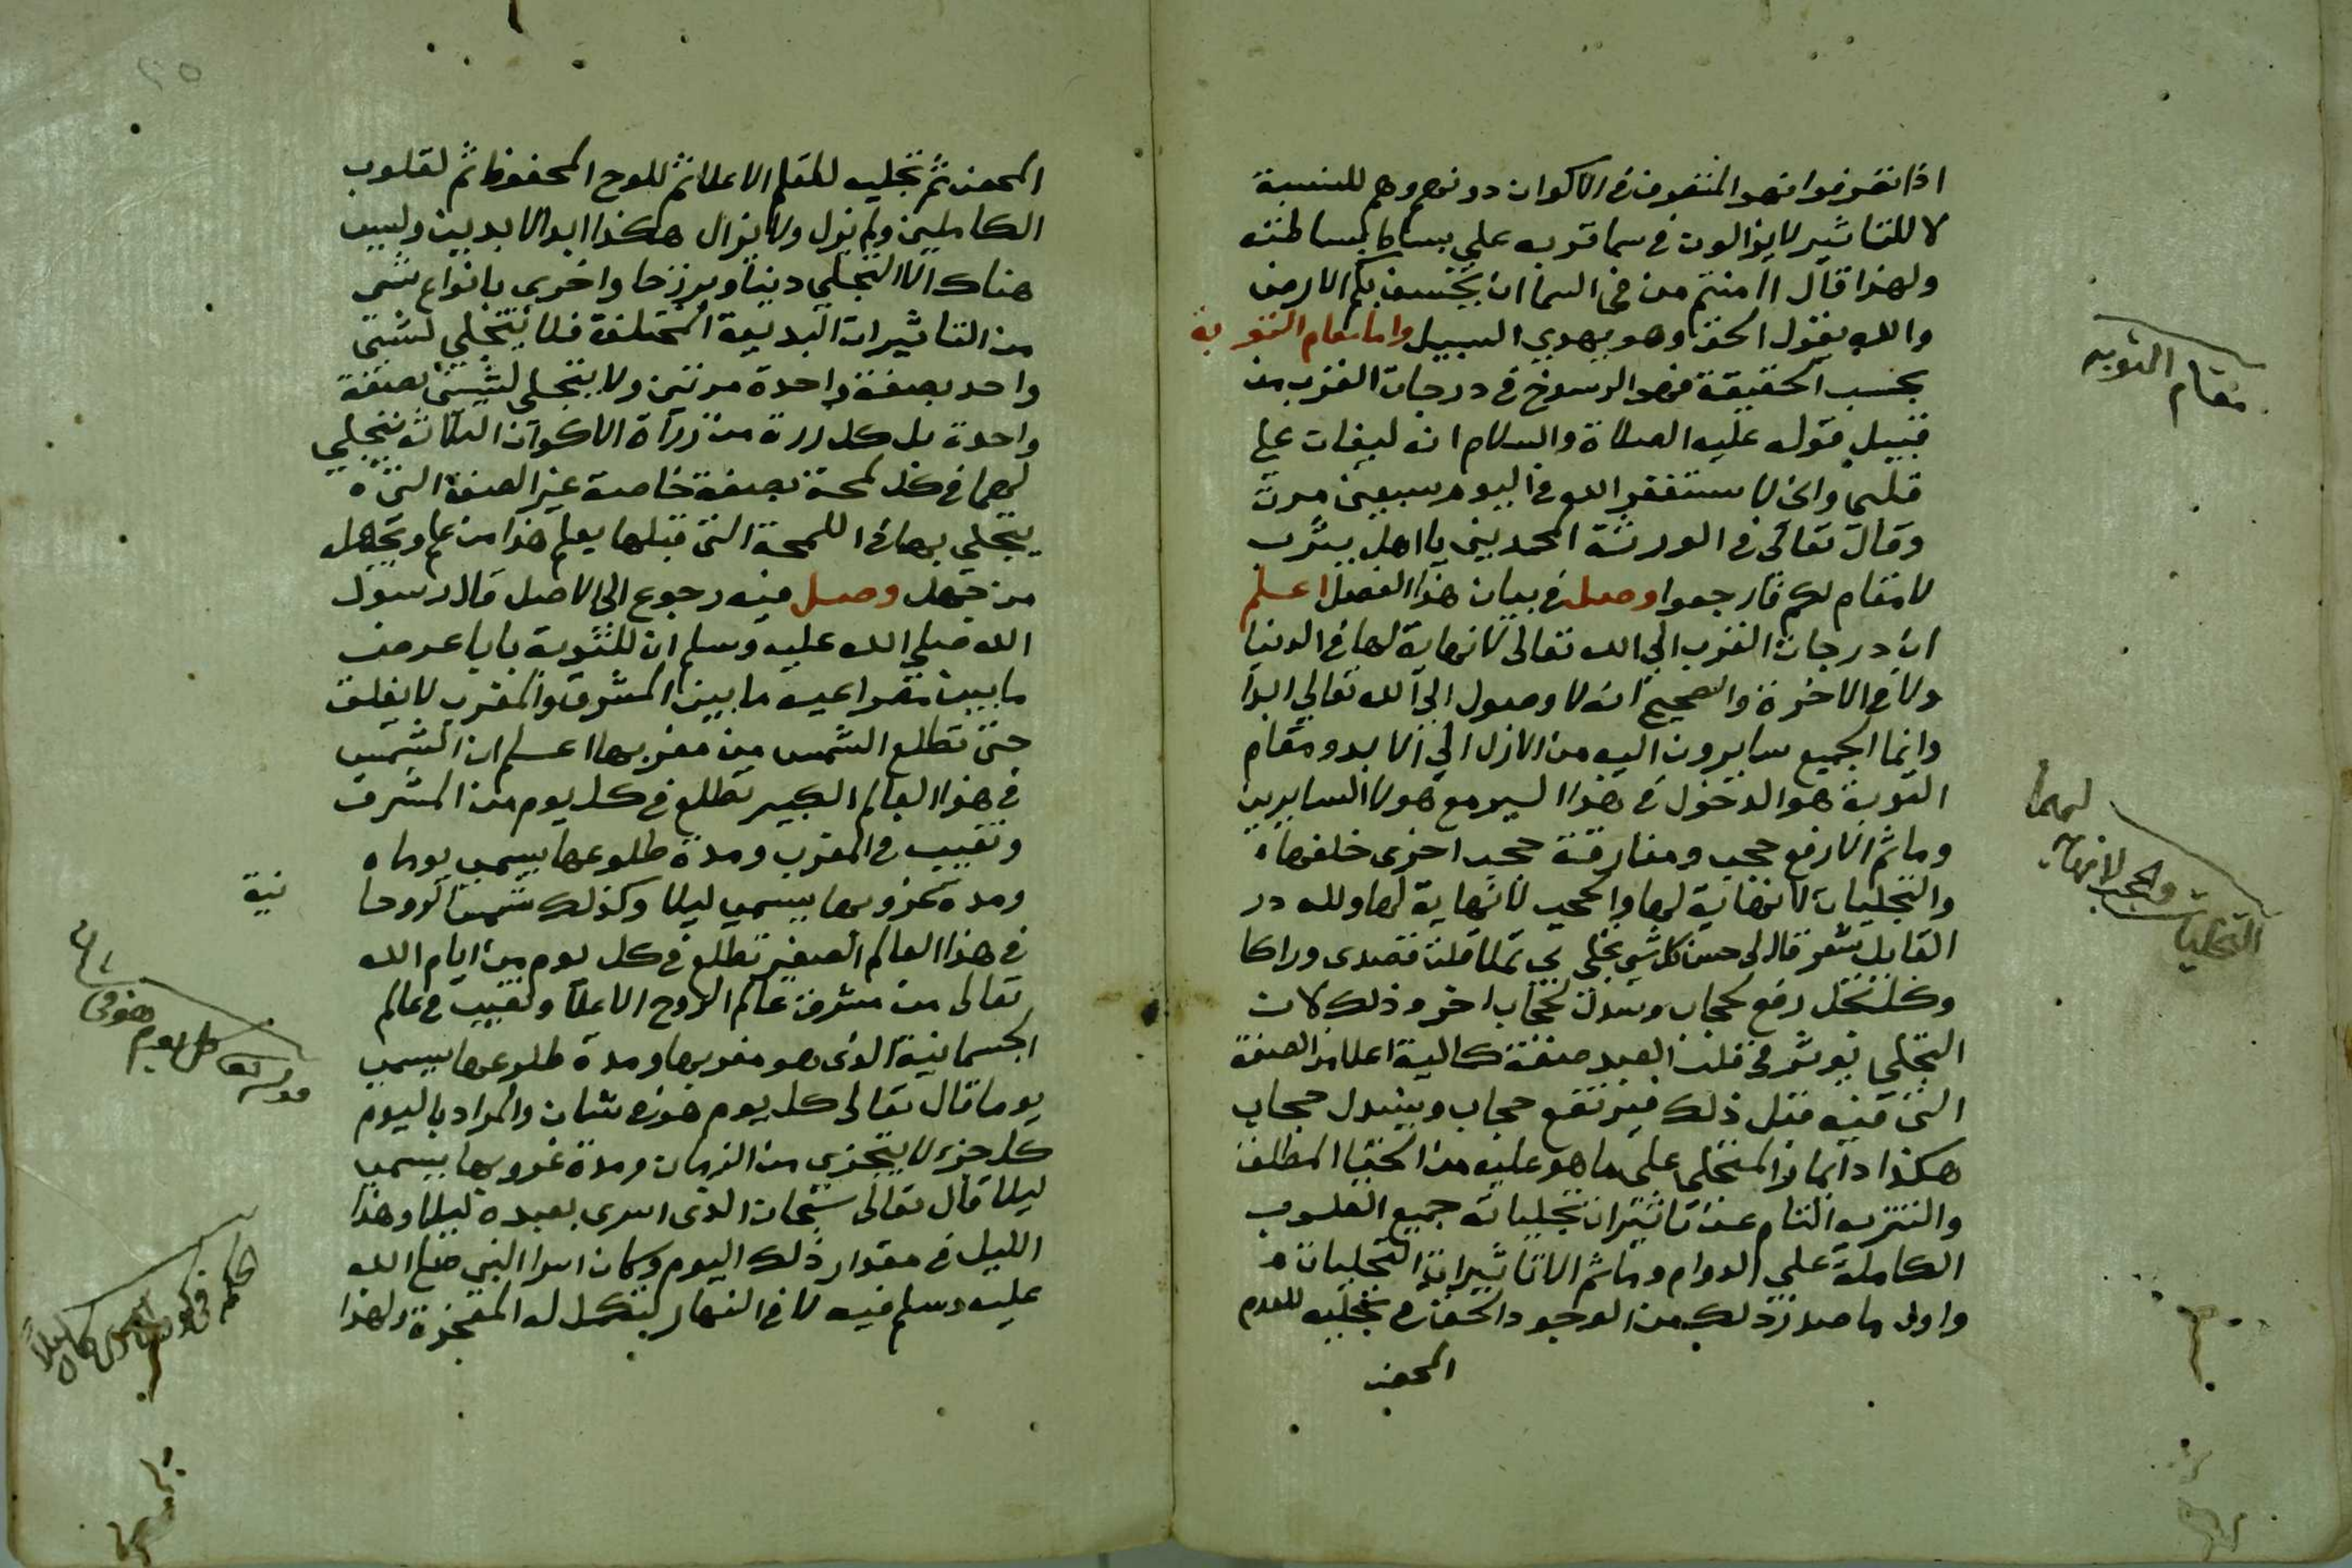 اذا تصرفوا فهو المتصرف في الاكوان دونهم وهم للنسبة
لا للتاثير لا يزالون في سما قربه علي بساط بساطته
ولهذا قال اامنتم من في السما ان يخسف بكم الارض
والله يقول الحق وهو يهدي السبيل واما مقام التوبة
بحسب الحقيقة فهو الرسوخ في درجات القرب من
قبيل قوله عليه الصلاة والسلام انه ليغان علي
قلبي واني لاستغفر الله في اليوم سبعين مرة
وقال تعالى في الورثة المحمديين يا اهل يثرب
لا مقام لكم فارجعوا وصل في بيان هذا الفصل اعلم
ان درجات القرب الي الله تعالى لا نهاية لها في الدنيا
ولا في الاخرة والصحيح انه لا وصول الي الله تعالي ابدا
وانما الجميع سايرون اليه من الازل الي الابد ومقام
التوبة هو الدخول في هذا السير مع هولا السايرين
وما ثم الا رفع حجب ومفارقة حجب اخرى خلفها
والتجليات لا نهاية لها والحجب لا نهاية لها ولله در
القايل شعر قال لي حسن كل شي تجلى بي تملا قلت قصدى وراكا
وكل تجل رفع لحجاب وسدل لحجاب اخر وذلك لان
التجلي يوثر في قلب العبد صفة كمالية اعلا من الصفة
التي فيه قبل ذلك فيرتفع حجاب وينسدل حجاب
هكذا دايما والمتجلي على ما هو عليه من الغنا المطلق
والتنزيه التام عن تاثيرات تجلياته جميع القلوب
الكاملة علي الدوام وما ثم الا تاثيرات التجليات
واول ما صدر ذلك من الوجود الحق في تجليه للعدم
المحض
مقام التوبه
التجليات والحجب لا نهاية لهما
المحض ثم تجليه للقلم الاعلا ثم للوح المحفوظ ثم لقلوب
الكاملين ولم يزل ولا يزال هكذا ابد الابدين وليس
هناك الا التجلي دنيا وبرزخا واخرى بانواع شتى
من التاثيرات البديعة المختلفة فلا يتجلي لشي
واحد بصفة واحدة مرتين ولا يتجلى لشيين بصفة
واحدة بل كل ذرة من ذراة الاكوان الثلاثة يتجلي
لها في كل لمحة بصفة خاصة غير الصفة التي
يتجلي بها في اللمحة التي قبلها يعلم هذا من علم ويجهل
من جهل وصل فيه رجوع الي الاصل قال رسول
الله صلي الله عليه وسلم ان للتوبة بابا عرض
ما بين مصراعيه ما بين المشرق والمغرب لا يغلق
حتى تطلع الشمس من مغربها اعلم ان الشمس
في هذا العالم الكبير تطلع في كل يوم من المشرق
وتغيب في المغرب ومدة طلوعها يسمى يوما
ومدة غروبها يسمى ليلا وكذلك شمس الروحا نية
في هذا العالم الصغير تطلع في كل يوم من ايام الله
تعالى من مشرق عالم الروح الاعلا وتغيب في عالم
الجسمانية الذي هو مغربها ومدة طلوعها يسمى
يوما قال تعالى كل يوم هو في شان والمراد باليوم
كل جزء لا يتجزي من الزمان ومدة غروبها يسمى
ليلا قال تعالى سبحان الذى اسرى بعبده ليلا وهذا
الليل في مقدار ذلك اليوم وكان اسرا النبي صلي الله
عليه وسلم فيه لا في النهار لتكمل له المعجزة ولهذا
قوله كل يوم هو في شان